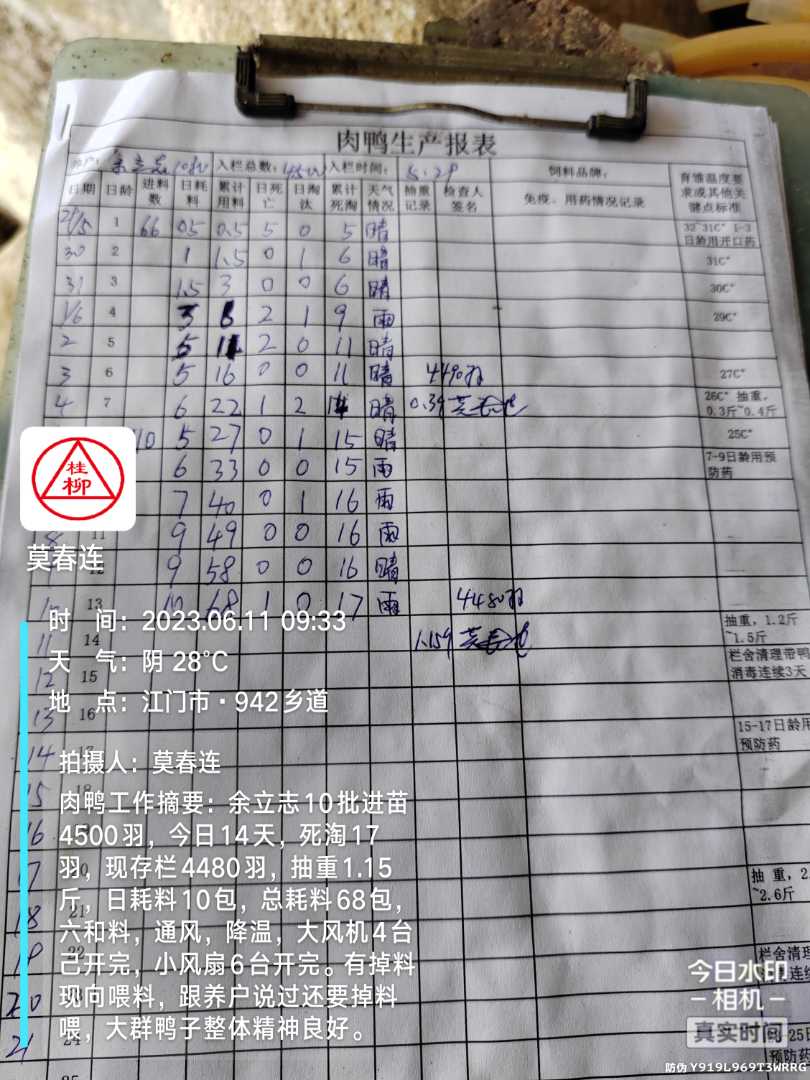 肉鸭生产报表
养户: 余立志10批 入栏总数: 4500 入栏时间: 5.29 饲料品牌:
日期 日龄 进料数 日耗料 累计用料 日死亡 日淘汰 累计死淘 天气情况 抽重记录 检查人签名 免疫、用药情况记录 育雏温度要求或其他关键点标准
29/5 1 66 0.5 0.5 5 0 5 晴 32-31C° 1-3日龄用开口药
30 2 1 1.5 0 1 6 晴 31C°
31 3 1.5 3 0 0 6 晴 30C°
1/6 4 3 6 2 1 9 雨 29C°
2 5 5 11 2 0 11 晴
3 6 5 16 0 0 11 晴 4490羽 27C°
4 7 6 22 1 2 14 晴 0.39 26C° 抽重,0.3斤~0.4斤
110 5 27 0 1 15 晴 25C°
6 33 0 0 15 雨 7-9日龄用预防药
7 40 0 1 16 雨
8 11 9 49 0 0 16 雨
12 9 58 0 0 16 晴
10 13 10 68 1 0 17 雨 4480羽
11 14 1.159 抽重,1.2斤~1.5斤
12 15 栏舍清理带鸭消毒连续3天
13 16
14 15-17日龄用预防药
15
16
17 抽重,2
~2.6斤
18 21
19 22 栏舍清理
连续
20
21 24 25日
预防药
桂柳
莫春连
时 间:2023.06.11 09:33
天 气:阴 28℃
地 点:江门市·942乡道
拍摄人:莫春连
肉鸭工作摘要:余立志10批进苗
4500羽,今日14天,死淘17
羽,现存栏4480羽,抽重1.15
斤,日耗料10包,总耗料68包,
六和料,通风,降温,大风机4台
己开完,小风扇6台开完。有掉料
现向喂料,跟养户说过还要掉料
喂,大群鸭子整体精神良好。
今日水印
相机
真实时间
防伪 Y919L969T3WRRG